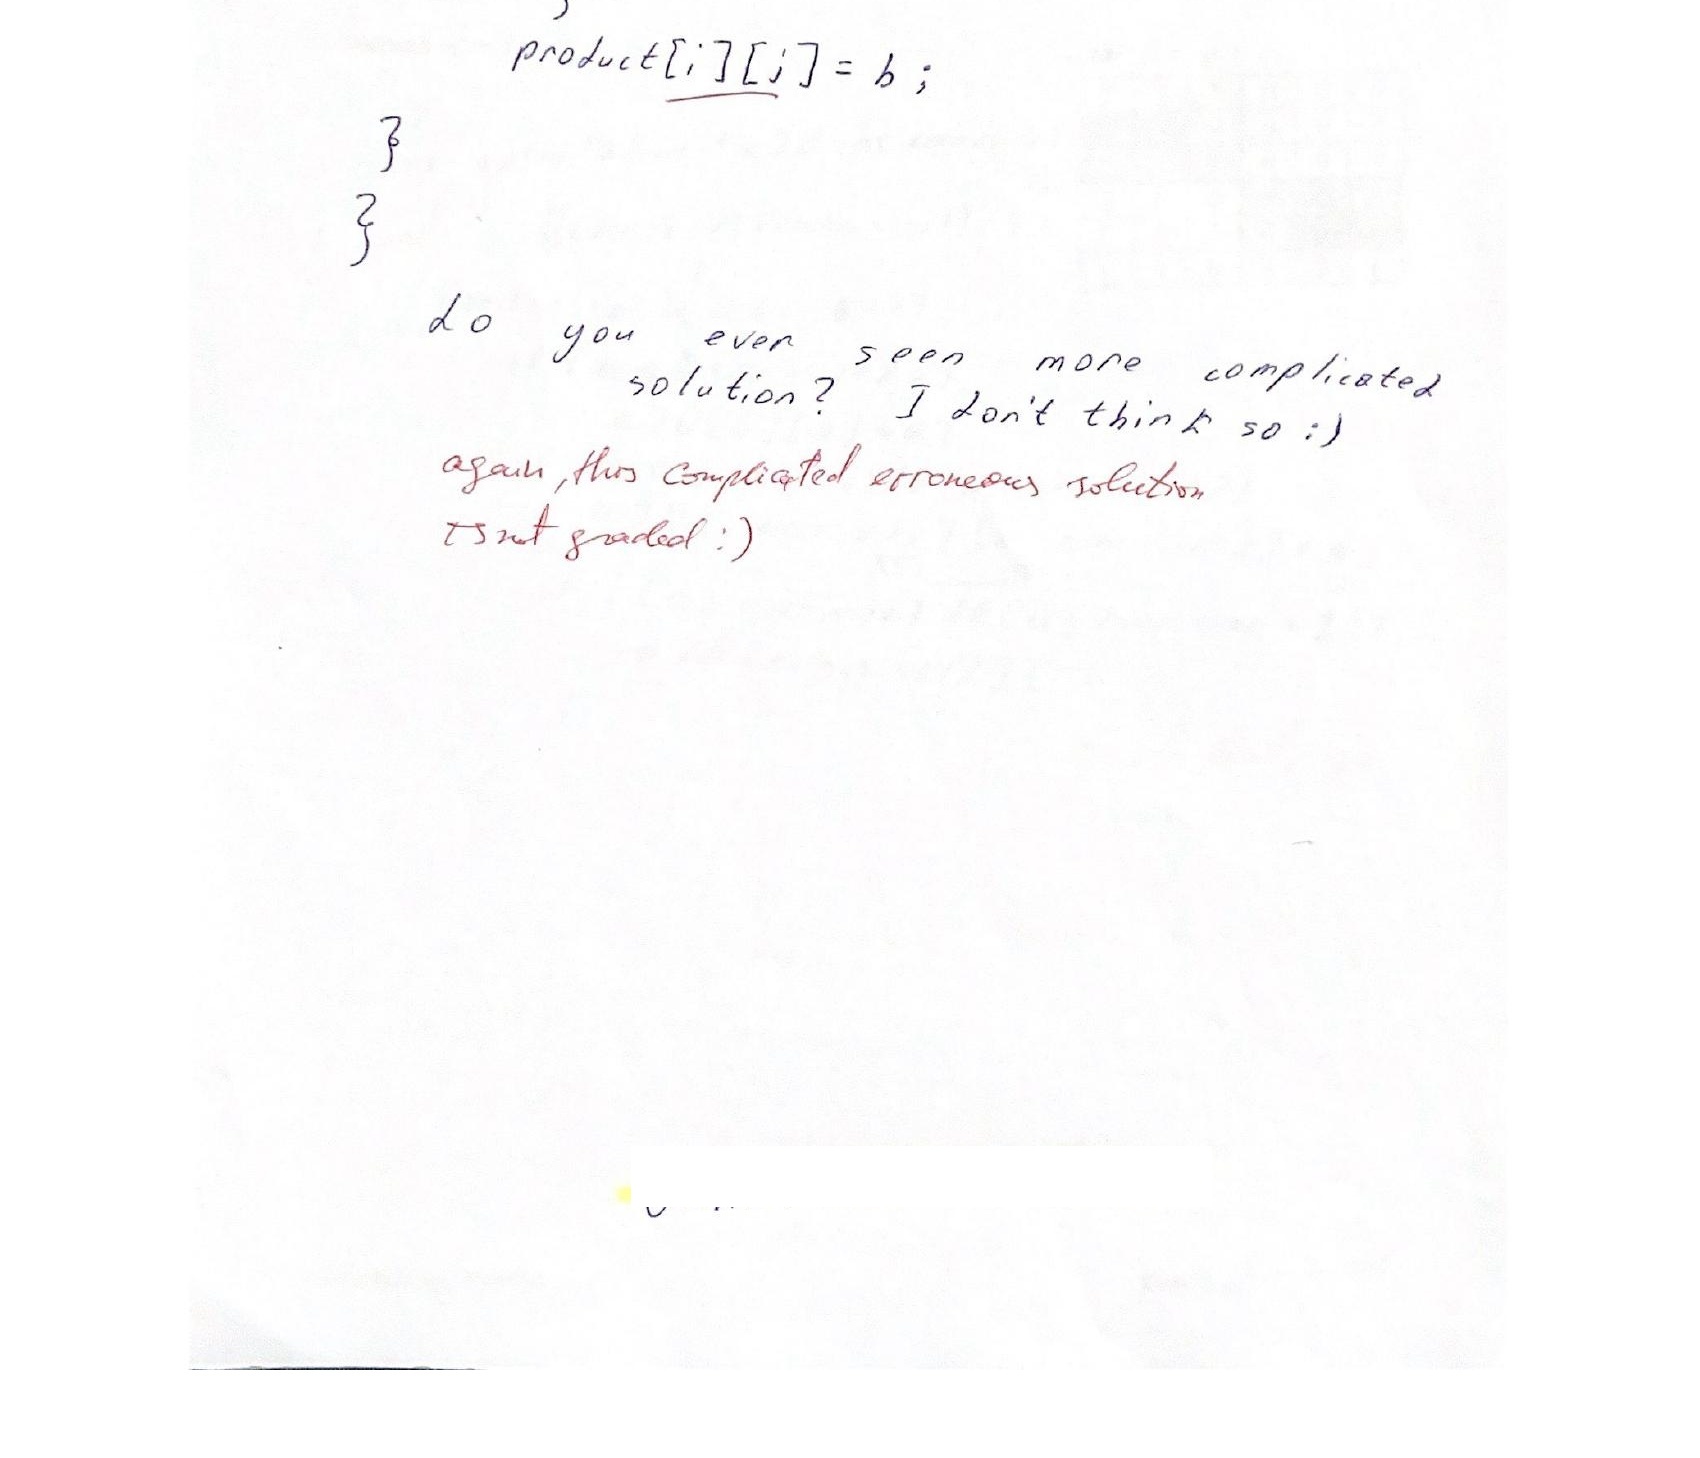 }
product[i][j] = b;
}
}
do you ever seen more complicated
solution? I don't think so :)
again, this complicated erroneous solution
is not graded :)